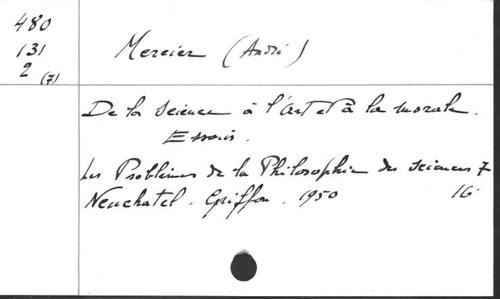 480
131
2 (7)
Mercier (André)
De la Science à l'Art et à la morale.
Essais.
Les Problèmes de la Philosophie des Sciences 7
Neuchatel. Griffon. 1950 16